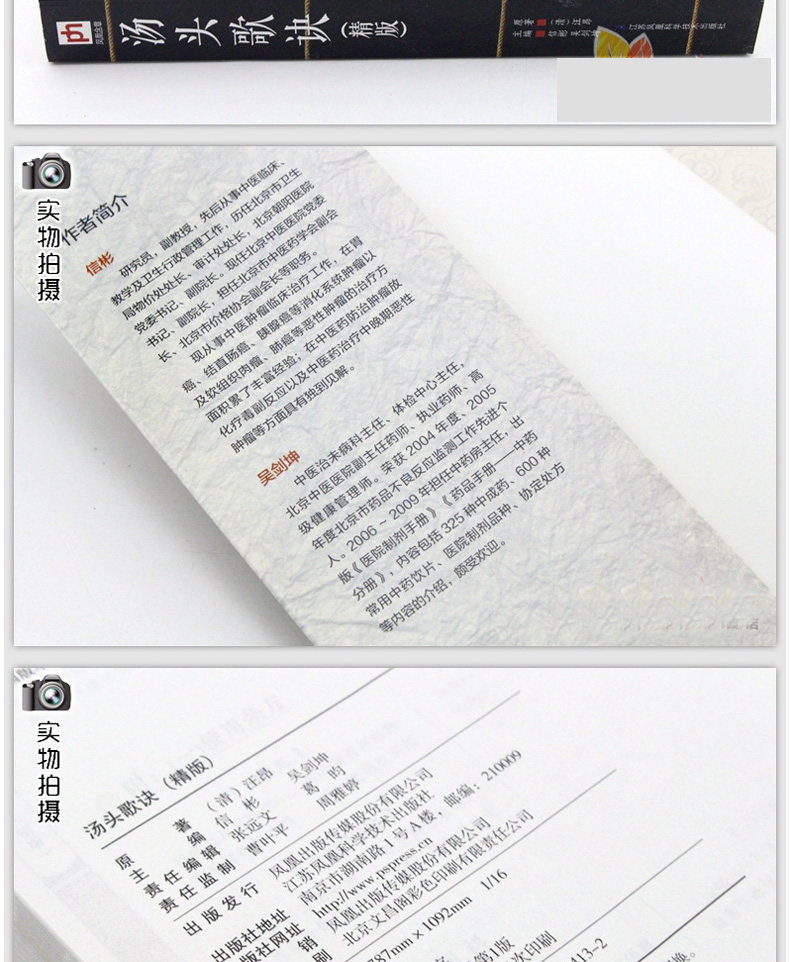 汤头歌诀(精版)
原著 (清)汪昂
主编 信彬 吴剑坤
江苏凤凰科学技术出版社
实物拍摄
作者简介
信彬
研究员，副教授，先后从事中医临床、
教学及卫生行政管理工作，历任北京市卫生
局物价处处长、审计处处长，北京朝阳医院
党委书记、副院长。现任北京中医医院党委
书记、副院长，担任北京市中医药学会副会
长、北京市价格协会副会长等职务。
现从事中医肿瘤临床治疗工作，在胃
癌、结直肠癌、胰腺癌等消化系统肿瘤以
及软组织肉瘤、肺癌等恶性肿瘤的治疗方
面积累了丰富经验；在中医药防治肿瘤放
化疗毒副反应以及中医药治疗中晚期恶性
肿瘤等方面具有独到见解。
吴剑坤
中医治未病科主任、体检中心主任，
北京中医医院副主任药师、执业药师、高
级健康管理师。荣获2004年度、2005
年度北京市药品不良反应监测工作先进个
人。2006～2009年担任中药房主任，出
版《医院制剂手册》《药品手册——中药
分册》，内容包括325种中成药、600种
常用中药饮片、医院制剂品种、协定处方
等内容的介绍，颇受欢迎。
实物拍摄
汤头歌诀（精版）
原著 （清）汪昂
主编 信彬 吴剑坤
责任编辑 张远文 葛昀
责任监制 曹叶平 周雅婷
出版发行 凤凰出版传媒股份有限公司
江苏凤凰科学技术出版社
出版社地址 南京市湖南路1号A楼，邮编：210009
出版社网址 http://www.pspress.cn
销 凤凰出版传媒股份有限公司
刷 北京文昌阁彩色印刷有限责任公司
787mm×1092mm 1/16
第1版
次印刷
413-2
换。